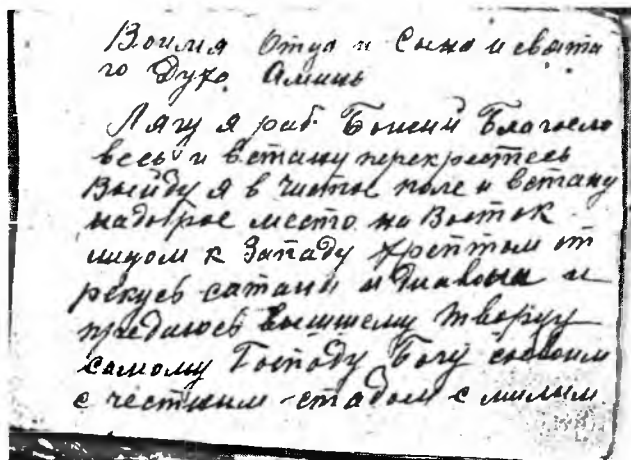 Воимя Отца и Сына и свята
го Духа Аминь
Лягу я раб Божий Благосло
весь и встану перекрестесь
Выйду я в чистое поле и встану
надоброе место на Восток
лицом к Западу хребтом от
рекусь сатаны и диавола и
предаюсь вышнему творцу
самому Господу Богу
с честным стадом с милым